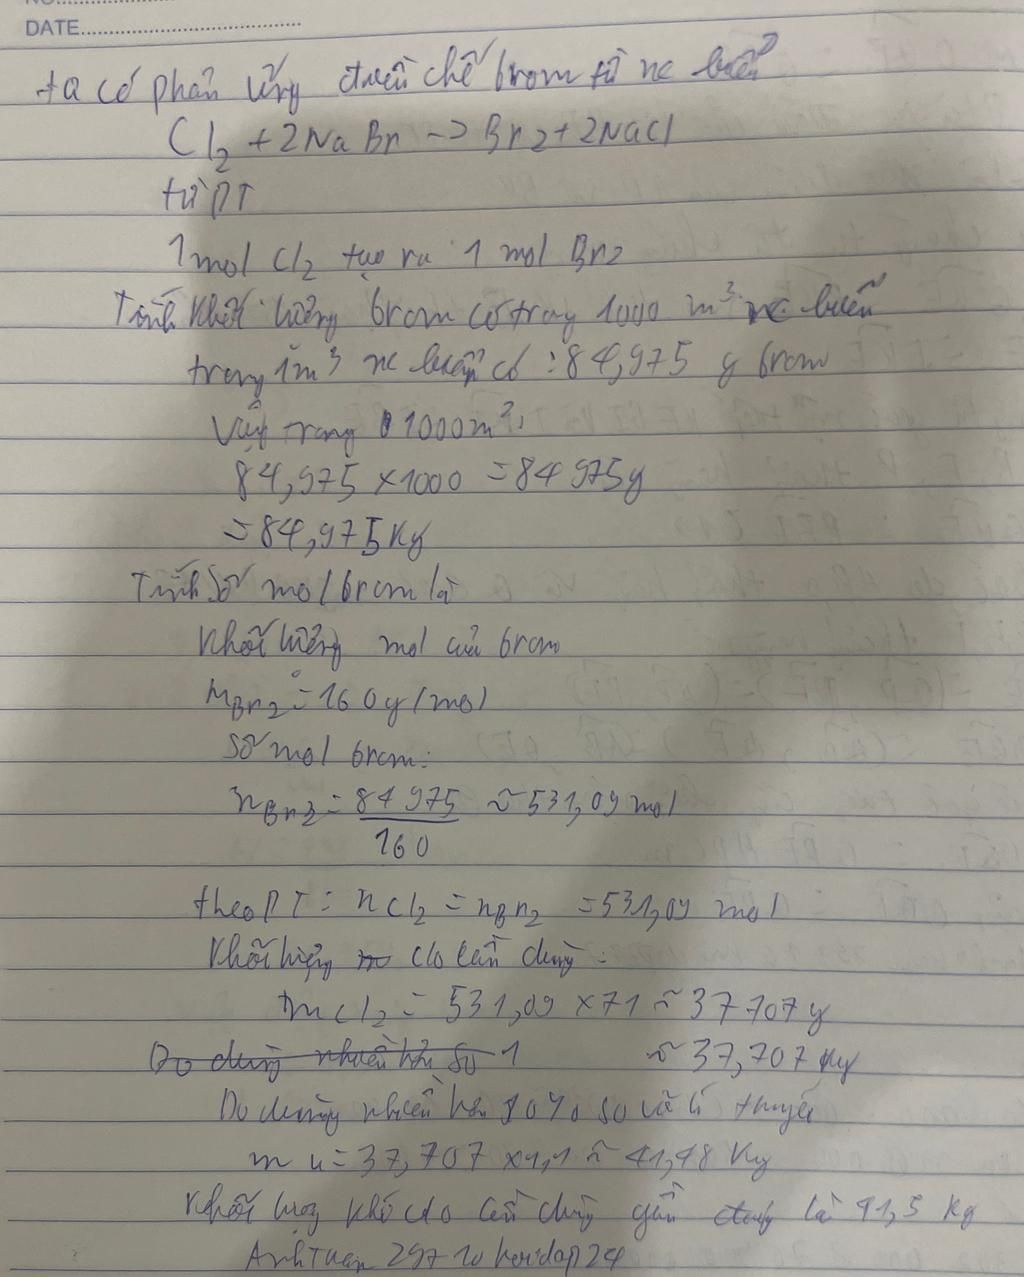 DATE
ta có phản ứng điều chế brom từ nc biển
Cl2 + 2NaBr -> Br2 + 2NaCl
từ PT
1mol Cl2 tạo ra 1 mol Br2
Tính khối lượng brom có trong 1000 m³ nc biển
trong 1m³ nc biển có : 84,975 g brom
Vậy trong 1000m³:
84,975 x 1000 = 84 975g
= 84,975 Kg
Tính số mol brom là
Khối lượng mol của brom
MBr2 = 160g/mol
Số mol brom:
nBr2 = 84 975 ≈ 531,09 mol
160
theo PT: nCl2 = nBr2 = 531,09 mol
Khối lượng clo cần dùng:
mCl2 = 531,09 x 71 ≈ 37 707g
Do dùng nhiều hơn so 1 ≈ 37,707 Kg
Do dùng nhiều hơn 10% so với lí thuyết
m = 37,707 x 1,1 ≈ 41,48 Kg
Khối lượng khí clo cần dùng gần đúng là 41,5 Kg
AnhTuan 29710 hoidap24